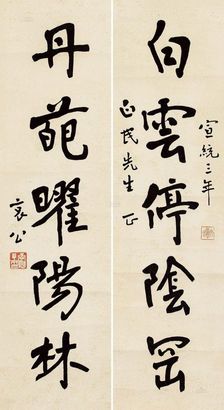 宣統三年
白雲停陰岡
正民先生 正
丹葩曜陽林